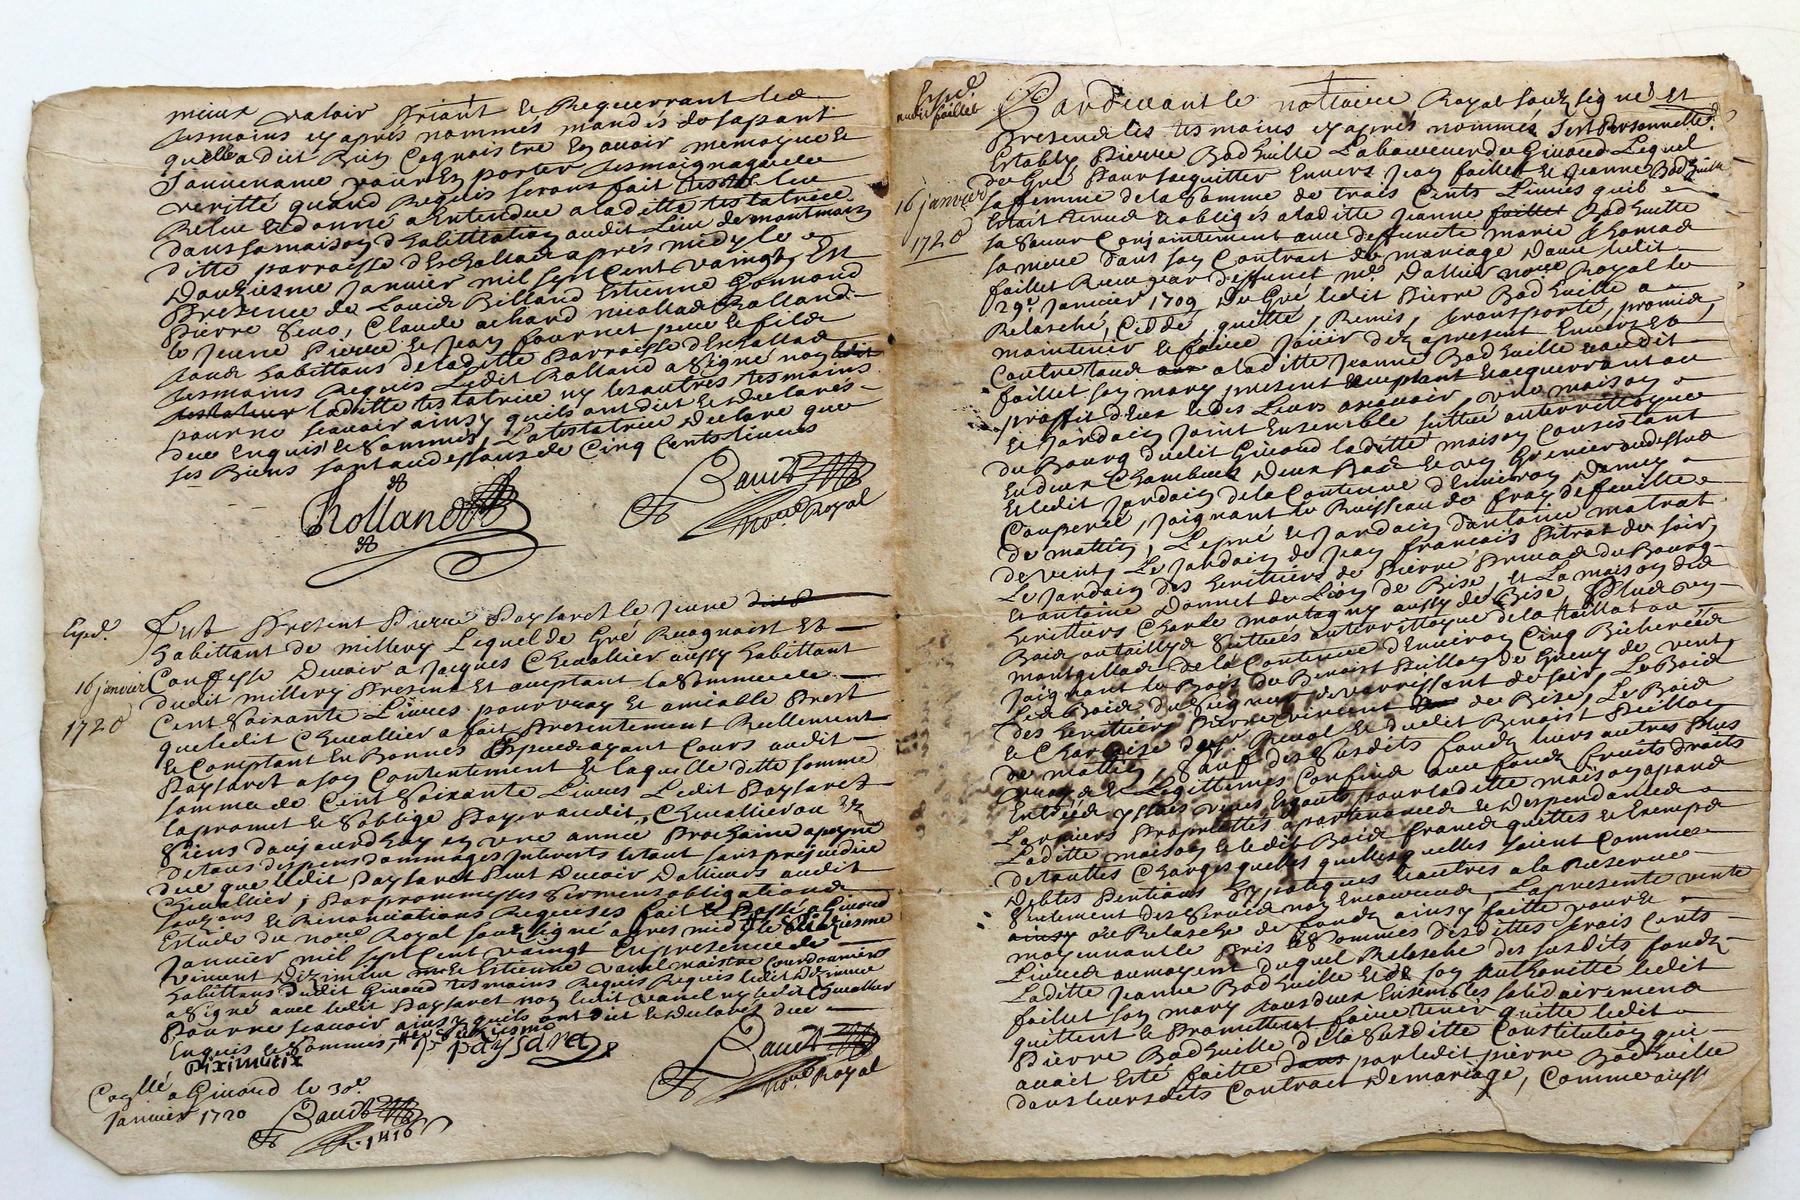 mieux valoir priant et Requerrant les
tesmoins cy après nommés mandés de sa part
quelle a dit bien Cognoistre En avoir memoire et
Souvenance pour En porter tesmoignage de
veritté quand Requis seront fait leu
Releu et donné a Entendre a laditte testatrice
dans sa maison d'habittation audit Lieu de montmain
ditte parroisse d'Eschallas après midy le
Douziesme Janvier mil sept Cent vaingt, En
Presence de Louis Billand Estienne Gonnond
Pierre Claude achard nicollas Rolland
le jeune Pierre et Jean fournet pere et fils
tous habittans de laditte Parroisse d'Eschallas
tesmoins Requis Ledit Rolland a signé non
laditte testatrice ny les autres tesmoins
pour ne scavoir ainsy quils ont dit et declarés
due Enquis et sommés, La testatrice declare que
ses Biens sont au dessous de Cinq Cents Livres
Rolland
Baud
No.re Royal
Exped.
16 janvier
1720
Fut Present Pierre Paysaret le jeune
habittant de millery Lequel de Gré Recognoist Et
Confesse Devoir a Jacques Chevallier aussy habittant
dudit millery Present Et aceptant la Somme de
Cent Soixante Livres pour vray Et amiable Prest
que ledit Chevallier a fait Presentement Reellement
et Comptant En Bonnes Especes ayant Cours audit
Paysaret a son Contentement Et laquelle ditte somme
somme de Cent Soixante Livres Ledit Paysaret
la promet et s'oblige Payer audit Chevallier ou Ez
Siens d'aujourdhuy en une année Prochaine a peyne
de tous despens dommages Interests Et tout sans prejudice
due que ledit Paysaret Peut Devoir Dailleurs audit
Chevallier, Par promesses Serment obligations
et Renonciations Requises fait Et Passé a Givord
Estude du no.re Royal sousigné apres midy le Seiziesme
Janvier mil sept Cent vaingt En presence de
vincent Diximieux Estienne vanel maistre Cordonnier
habittans dudit Givord tesmoins Requis ledit Diximieux
a signé avec ledit Paysaret non ledit vanel ny ledit Chevallier
Pour ne scavoir ainsy quils ont dit et declarés due
Enquis et Sommés,
P paysaret
Baud
No.re Royal
Coġllé a Givord le 30e
Janvier 1720
Baud
Exped.
audit faillet
16 janvier
1720
Pardevant le nottaire Royal sousigné et
Presents les tesmoins cy apres nommés Sest Personnellemt
Estably Pierre Badheuille Laboureur de Givord Lequel
de Gré Pour sacquitter Envers Jean faillet et Jeanne Badheuille
sa femme de la Somme de trois Cents Livres quil
Estoit tenu et obligés a laditte Jeanne Badheuille
sa Soeur Conjointement avec deffuncte marie Thomas
sa mere dans son Contrat de mariage avec ledit
faillet Receu par deffunct me Dallier no.re Royal le
29e Janvier 1709 De Gré ledit Pierre Badheuille a
Relasché, Ceddé, quitté, Remis, transporté, promis,
maintenir et faire Jouir dez apresent Envers Et
Contre tous a laditte Jeanne Badheuille et audit
faillet son mary present aceptant Et acquerrant au
proffit d'Eux et des Leurs ascavoir, une maison
et Jardain Joint Ensemble scittué au territtoire
du Bourg dudit Givord laditte maison Consistant
En deux Chambres Deux Bas et un Grenier audessus
Et ledit Jardain de la Contenue d'Environ Demy
Couperée, Joignant le Ruisseau de
de matin, Le pré et Jardain d'antoine matrat
de vent, Le Jardain de Jean françois Pitrat de soir,
Le Jardain des heritiers de Pierre Privas du Bourg
Et antoine Donnet de Lion de Bise, Et La maison des
heritiers Charle montagny aussy de Bise, Plus un
Bois ou taillys scittués au territtoire de la taillat ou
montgillard de la Contenue d'Environ Cinq Bicherées
Joignant le Bois de Benoist Peillon de Grevy de vent,
Les Bois du Seigneur de varrissant de soir, Le Bois
des heritiers Pierre vincent de Bise, Le Bois
de matin, Sauf des Susdits fonds leurs autres Plus
vrays et Legittimes Confins avec fonds fruits droits
Entrées yssues vues Egouts pour laditte maison apand
Laditte maison et ledit Bois francs quittes et Exempts
de touttes Charges quelles quelles soient Comme
Debtes Pentions hypoteques et autres a la Reserve
Seulement des Servis non Encourus, La presente vente
ou Relasche de fonds ainsy faitte pour et
moyennant le Pris et Sommes desdittes trois Cents
Livres au moyent duquel Relasche des susdits fonds
Laditte Jeanne Badheuille Et de son authoritté ledit
faillet son mary tous deux Ensembles solidairement
quittent et Promettent faire tenir quitte ledit
Pierre Badheuille de la Susditte Constitution qui
avait Esté faitte par ledit pierre Badheuille
dans leursdits Contract De mariage, Comme aussy